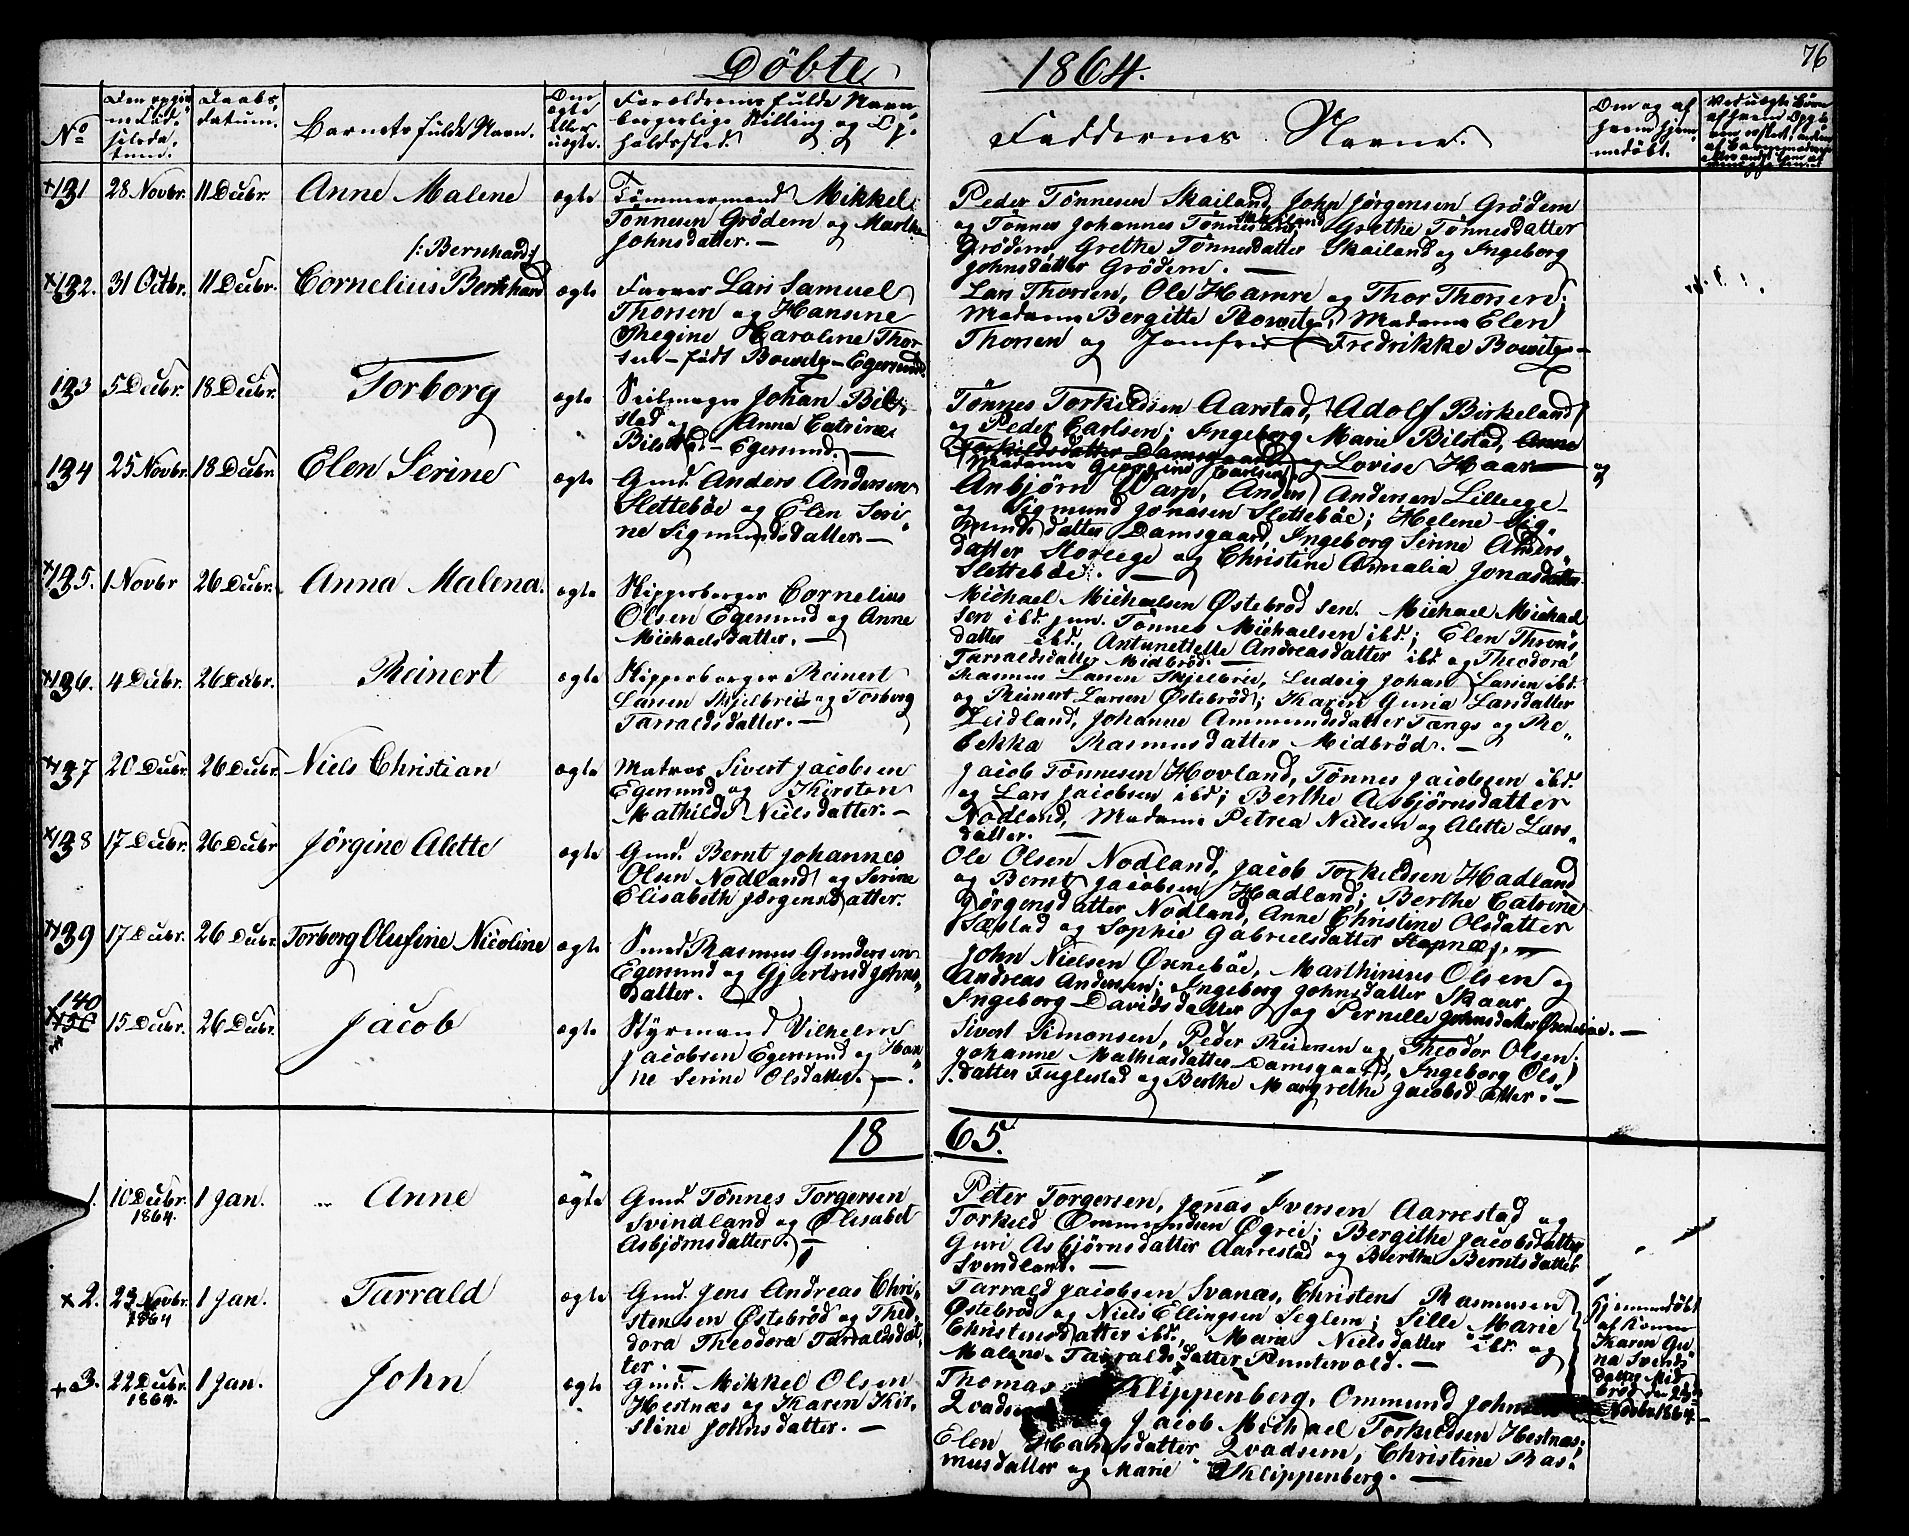 Döbte
1864.
76
No
Daabs-
datum.
Barnets fulde Navn.
Om
ægte
eller
uægte.
Forældrenes fulde Navn,
borgerlige Stilling og Op-
holdssted.
Faddernes Navne.
Om og af
hvem hjem-
medöbt.
+131
28 Novbr.
11 Decbr.
Anne Malene
ægte
Tömmermand Mikkel
Tönnesen Grödem og Marthe
Johnsdatter. —
Peder Tönnesen Skailand, John Jörgensen Grödem
og Tönnes Johannes Tönnesen Skailand; Grethe Tönnesdatter
Grödem, Grethe Tönnesdatter Skailand og Ingeborg
Johnsdatter Grödem. —
×132.
31 Octbr.
11 Decbr.
/: Bernhard :/
Cornelius Bernhard
ægte
Farver Lars Samuel
Thorsen og Hansine
Regine Haroline Thor
sen – födt Bowitz – Egersund.
Lars Thorsen, Ole Hamre og Thor Thorsen;
Madame Bergitte Bowitz, Madame Elen
Thorsen og Jomfru Fredrikke Bowitz –
133
5 Decbr.
18 Decbr.
Torborg
ægte
Seilmager Johan Bil-
stad og Anna Catrine
Bilstad – Egersund. —
Tönnes Torkildsen Aarstad, Adolf Birkeland
og Peder Carlsen; Ingeborg Marie Bilstad, Anne
Torkildsdatter Damsgaard og Lovise Haar
Madame Georgine Carlsen og
134
25 Novbr.
18 Decbr.
Elen Serine
ægte
Gmd. Anders Andersen
Sletteböe og Elen Seri-
ne Sigmundsdatter. —
Anbjörn Warp, Anders Andersen Lilleege
og Sigmund Jonasen Sletteböe; Helene Sig-
mundsdatter Damsgaard, Ingeborg Serine Anders-
datter Storeege og Christine Amalia Jonasdatter
Sletteböe. —
×135.
1 Novbr
26 Decbr.
Anna Malena.
ægte
Skipperborger Cornelius
Olsen Egersund og Anne
Michaelsdatter. —
Michael Michaelsen Östebröd sen. Michael Michael
sen ibd. jun. Tönnes Michaelsen ibd.; Elen Throns-
datter ibd., Antunettelle Andreasdatter ibd. og Theodora
Tarraldsdatter Midbröd. —
×136.
4 Decbr.
26 Decbr.
Reinert
ægte
Skipperborger Reinert
Larsen Skjelbrei og Torborg
Tarraldsdatter. —
Rasmus Larsen Skjelbrei, Ludvig Johan Larsen ibd.
og Reinert Larsen Östebröd; Karen Guria Larsdatter
Leidland, Johanne Ammundsdatter Tangs og Re-
bekka Rasmusdatter Midbröd. —
×137
20 Decbr.
26 Decbr.
Niels Christian
ægte
Matros Sivert Jacobsen
Egersund og Kirsten
Mathilde Nielsdatter. —
Jacob Tönnesen Hovland, Tönnes Jacobsen ibd.
og Lars Jacobsen ibd.; Berthe Asbjörnsdatter
Nodland, Madame Petrea Nielsen og Alette Lars-
datter. —
×138
17 Decbr.
26 Decbr
Jörgine Alette
ægte
Gmd. Bernt Johannes
Olsen Nodland og Serine
Elisabeth Jörgensdatter.
Ole Olsen Nodland, Jacob Torkildsen Hadland
og Bernt Jacobsen Hadland; Berthe Catrine
Jörgensdatter Nodland, Anne Christine Olsdatter
Sæstad og Sophie Gabrielsdatter Stapnæs. —
×139
17 Decbr.
26 Decbr.
Torborg Olufine Nicoline
ægte
Smed Rasmus Gundersen
Egersund og Gjertrud Johns-
datter. —
John Nielsen Örneböe, Marthinius Olsen og
Andreas Andersen; Ingeborg Johnsdatter Skaar,
Ingeborg Davidsdatter og Pernille Johnsdatter Örneböe. —
140
×150
15 Decbr.
26 Decbr.
Jacob
ægte
Styrmand Vilhelm
Jacobsen Egersund og Han-
ne Serine Olsdatter. —
Sivert Simonsen, Peder Reiersen og Theodor Olsen;
Johanne Mathiasdatter Damsgaard, Ingeborg Ols-
datter Fuglestad og Berthe Margrethe Jacobsdatter. —
1865.
1.
10 Decbr.
1864.
1 Jan.
Anne
ægte
Gmd. Tönnes Torgersen
Svindland og Elisabet
Asbjörnsdatter. —
Peter Torgersen, Jonas Iversen Aarrestad og
Torkild Ommundsen Ögrei; Bergithe Jacobsdatter,
Guri Asbjörnsdatter Aarrestad og Berthe Berntsdatter
Svindland. —
×2.
23 Novbr.
1864
1 Jan.
Tarrald
ægte
Gmd. Jens Andreas Chri-
stensen Östebröd og Theo-
dora Theodora Tarraldsdat-
ter. —
Tarrald Jacobsen Svanæs, Christen Rasmusen
Östebröd og Niels Ellingsen Seglem; Sille Marie
Christensdatter ibd., Marie Nielsdatter ibd. og
Malene Tarraldsdatter Puntervold. —
Hjemmedöbt
af Konen
Karen Gu-
na Svends-
datter Mid-
bröd den 24
Novbr 1864. —
+3.
22 Decbr.
1864.
1 Jan.
John
ægte
Gmd. Mikkel Olsen
Hestnæs og Karen Kir-
stine Johnsdatter. —
Thomas Klippenberg, Ommund
og Jacob Michael Torkildsen Hestnæs;
Elen Hansdatter Qvadsem, Christine Ras-
musdatter og Marie Klippenberg. —